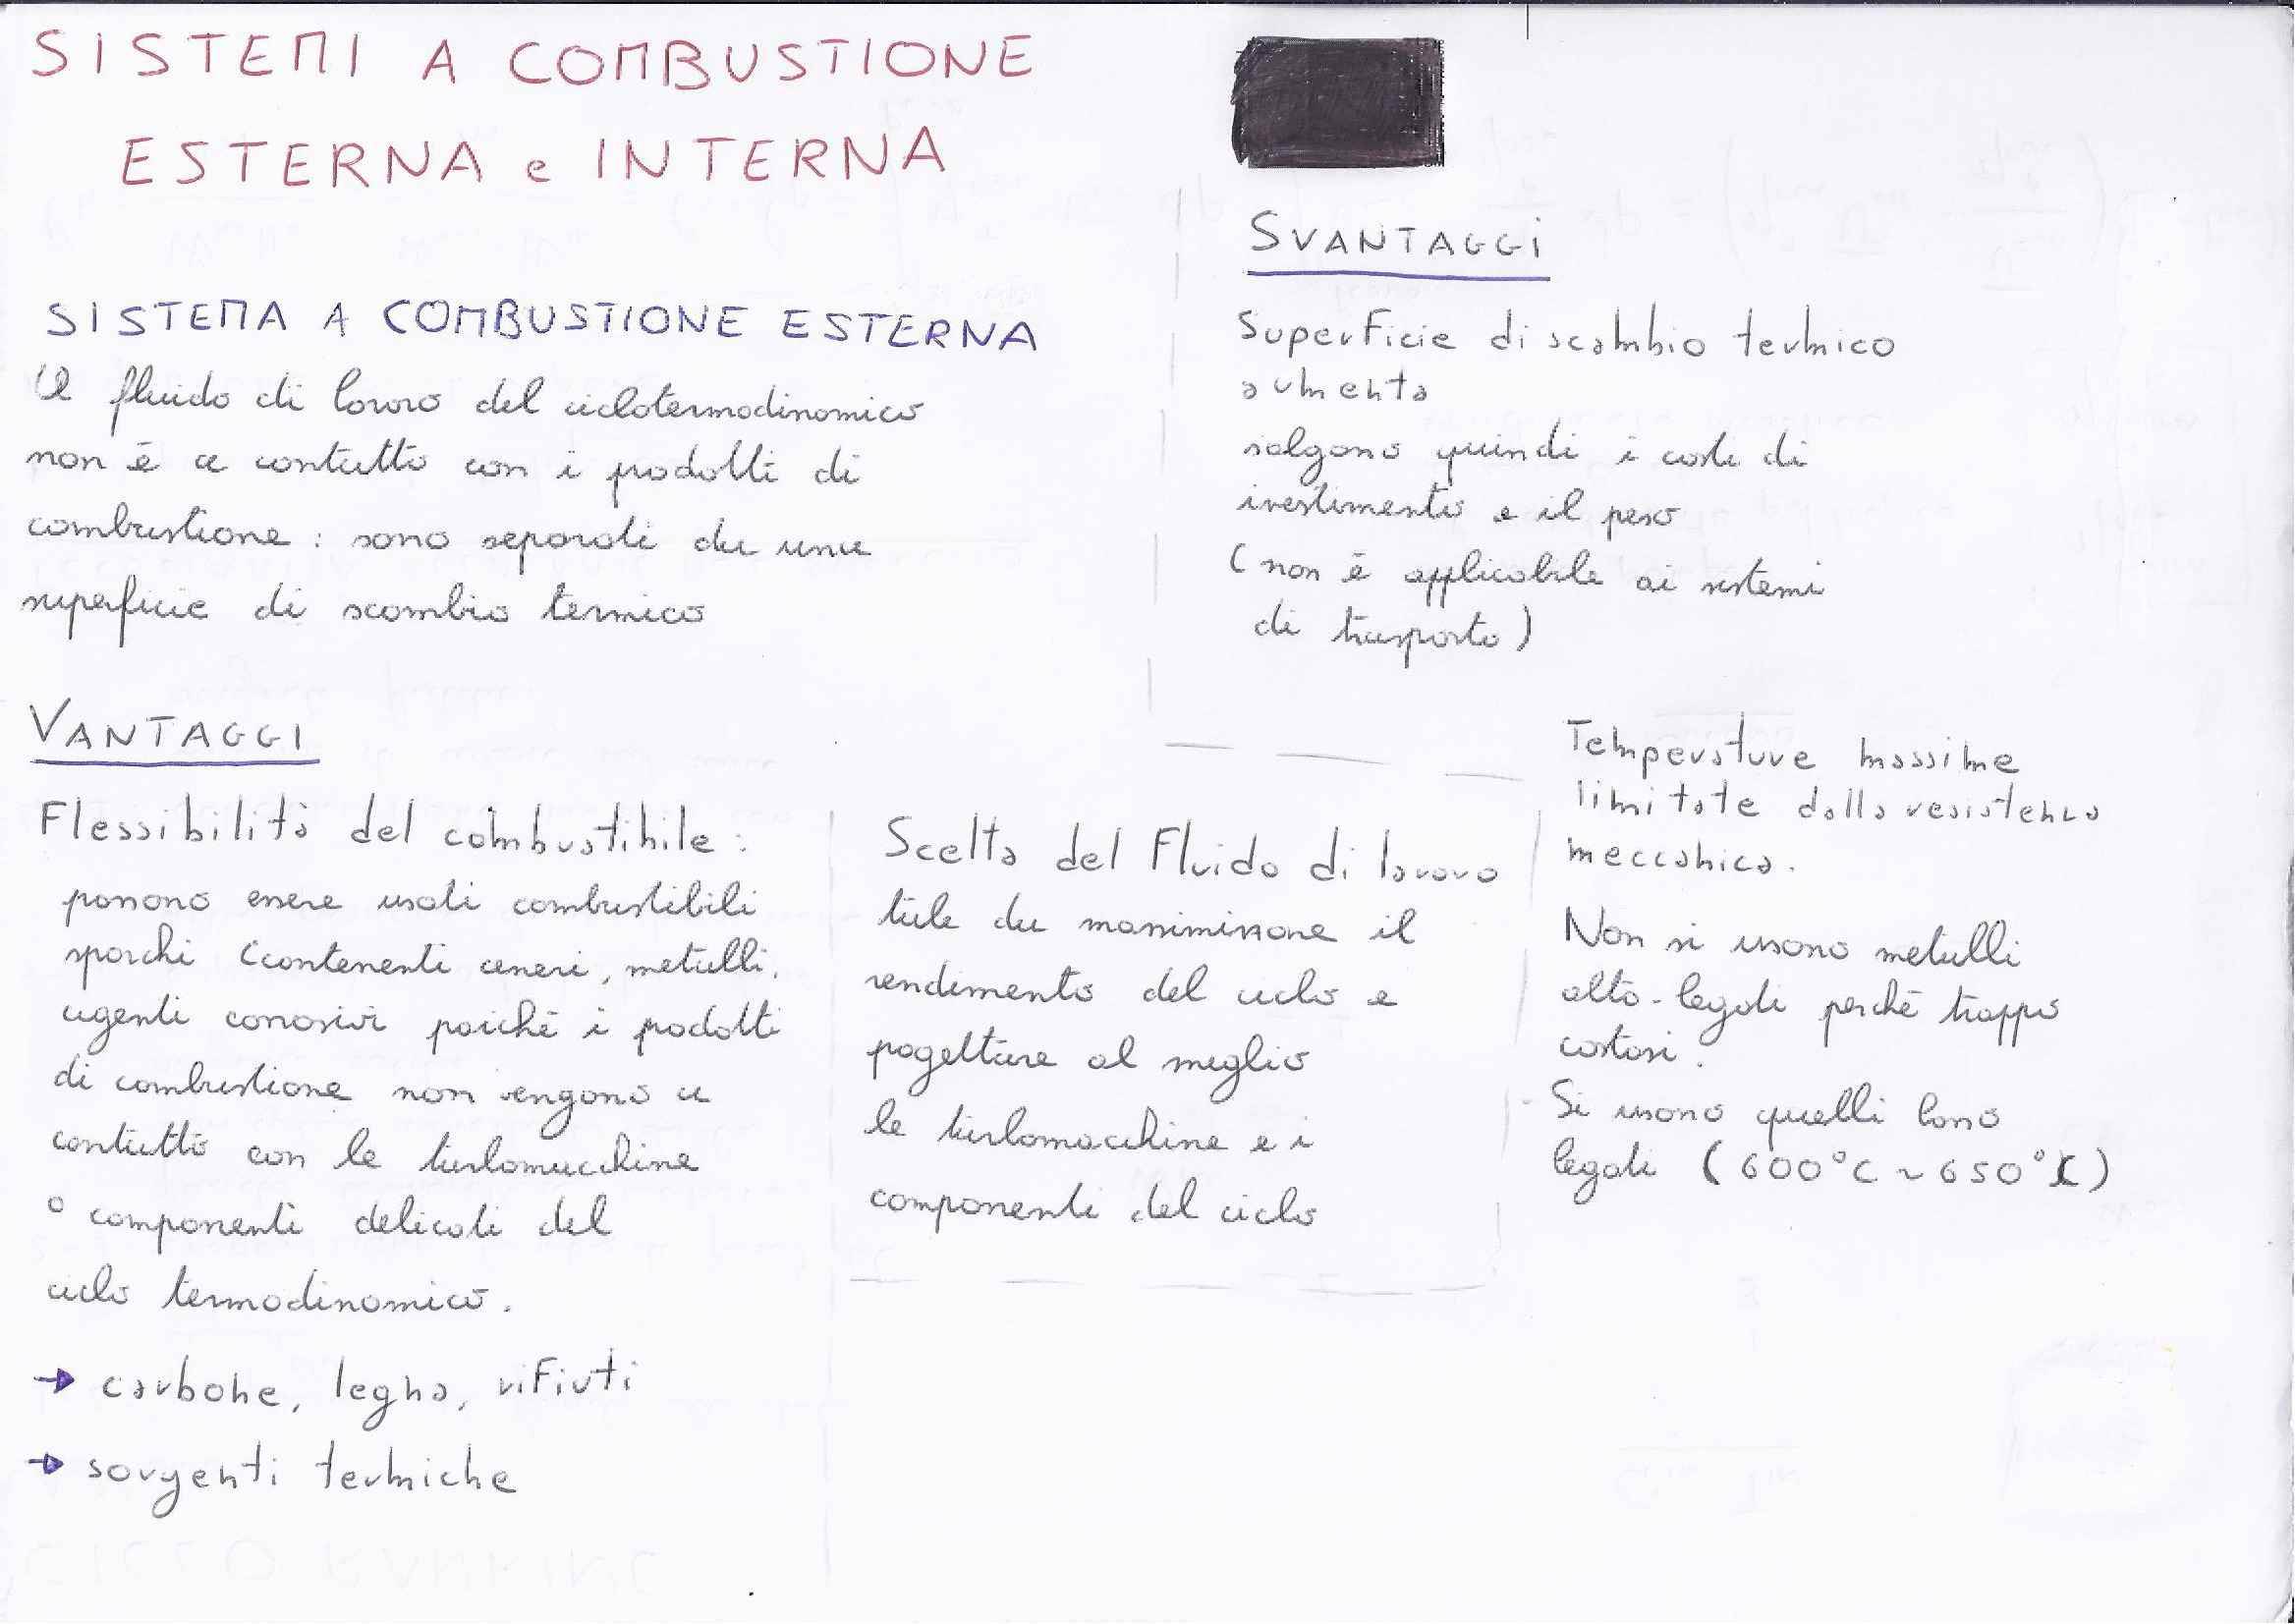 SISTEMI A COMBUSTIONE
ESTERNA e INTERNA
SISTEMA A COMBUSTIONE ESTERNA
Il fluido di lavoro del ciclotermodinamico
non è a contatto con i prodotti di
combustione : sono separati da una
superficie di scambio termico
VANTAGGI
Flessibilità del combustibile :
possono essere usati combustibili
sporchi (contenenti ceneri, metalli,
agenti corrosivi poiché i prodotti
di combustione non vengono a
contatto con le turbomacchine
o componenti delicati del
ciclo termodinamico.
→ carbone, legna, rifiuti
→ sorgenti termiche
Scelta del Fluido di lavoro
tale da massimizzare il
rendimento del ciclo e
progettare al meglio
le turbomacchine e i
componenti del ciclo
SVANTAGGI
Superficie di scambio termico
aumenta
salgono quindi i costi di
investimento e il peso
(non è applicabile ai sistemi
di trasporto)
Temperature massime
limitate dalla resistenza
meccanica.
Non si usano metalli
alto-legati perché troppo
costosi.
Si usano quelli basso
legati (600°C ~ 650°C)